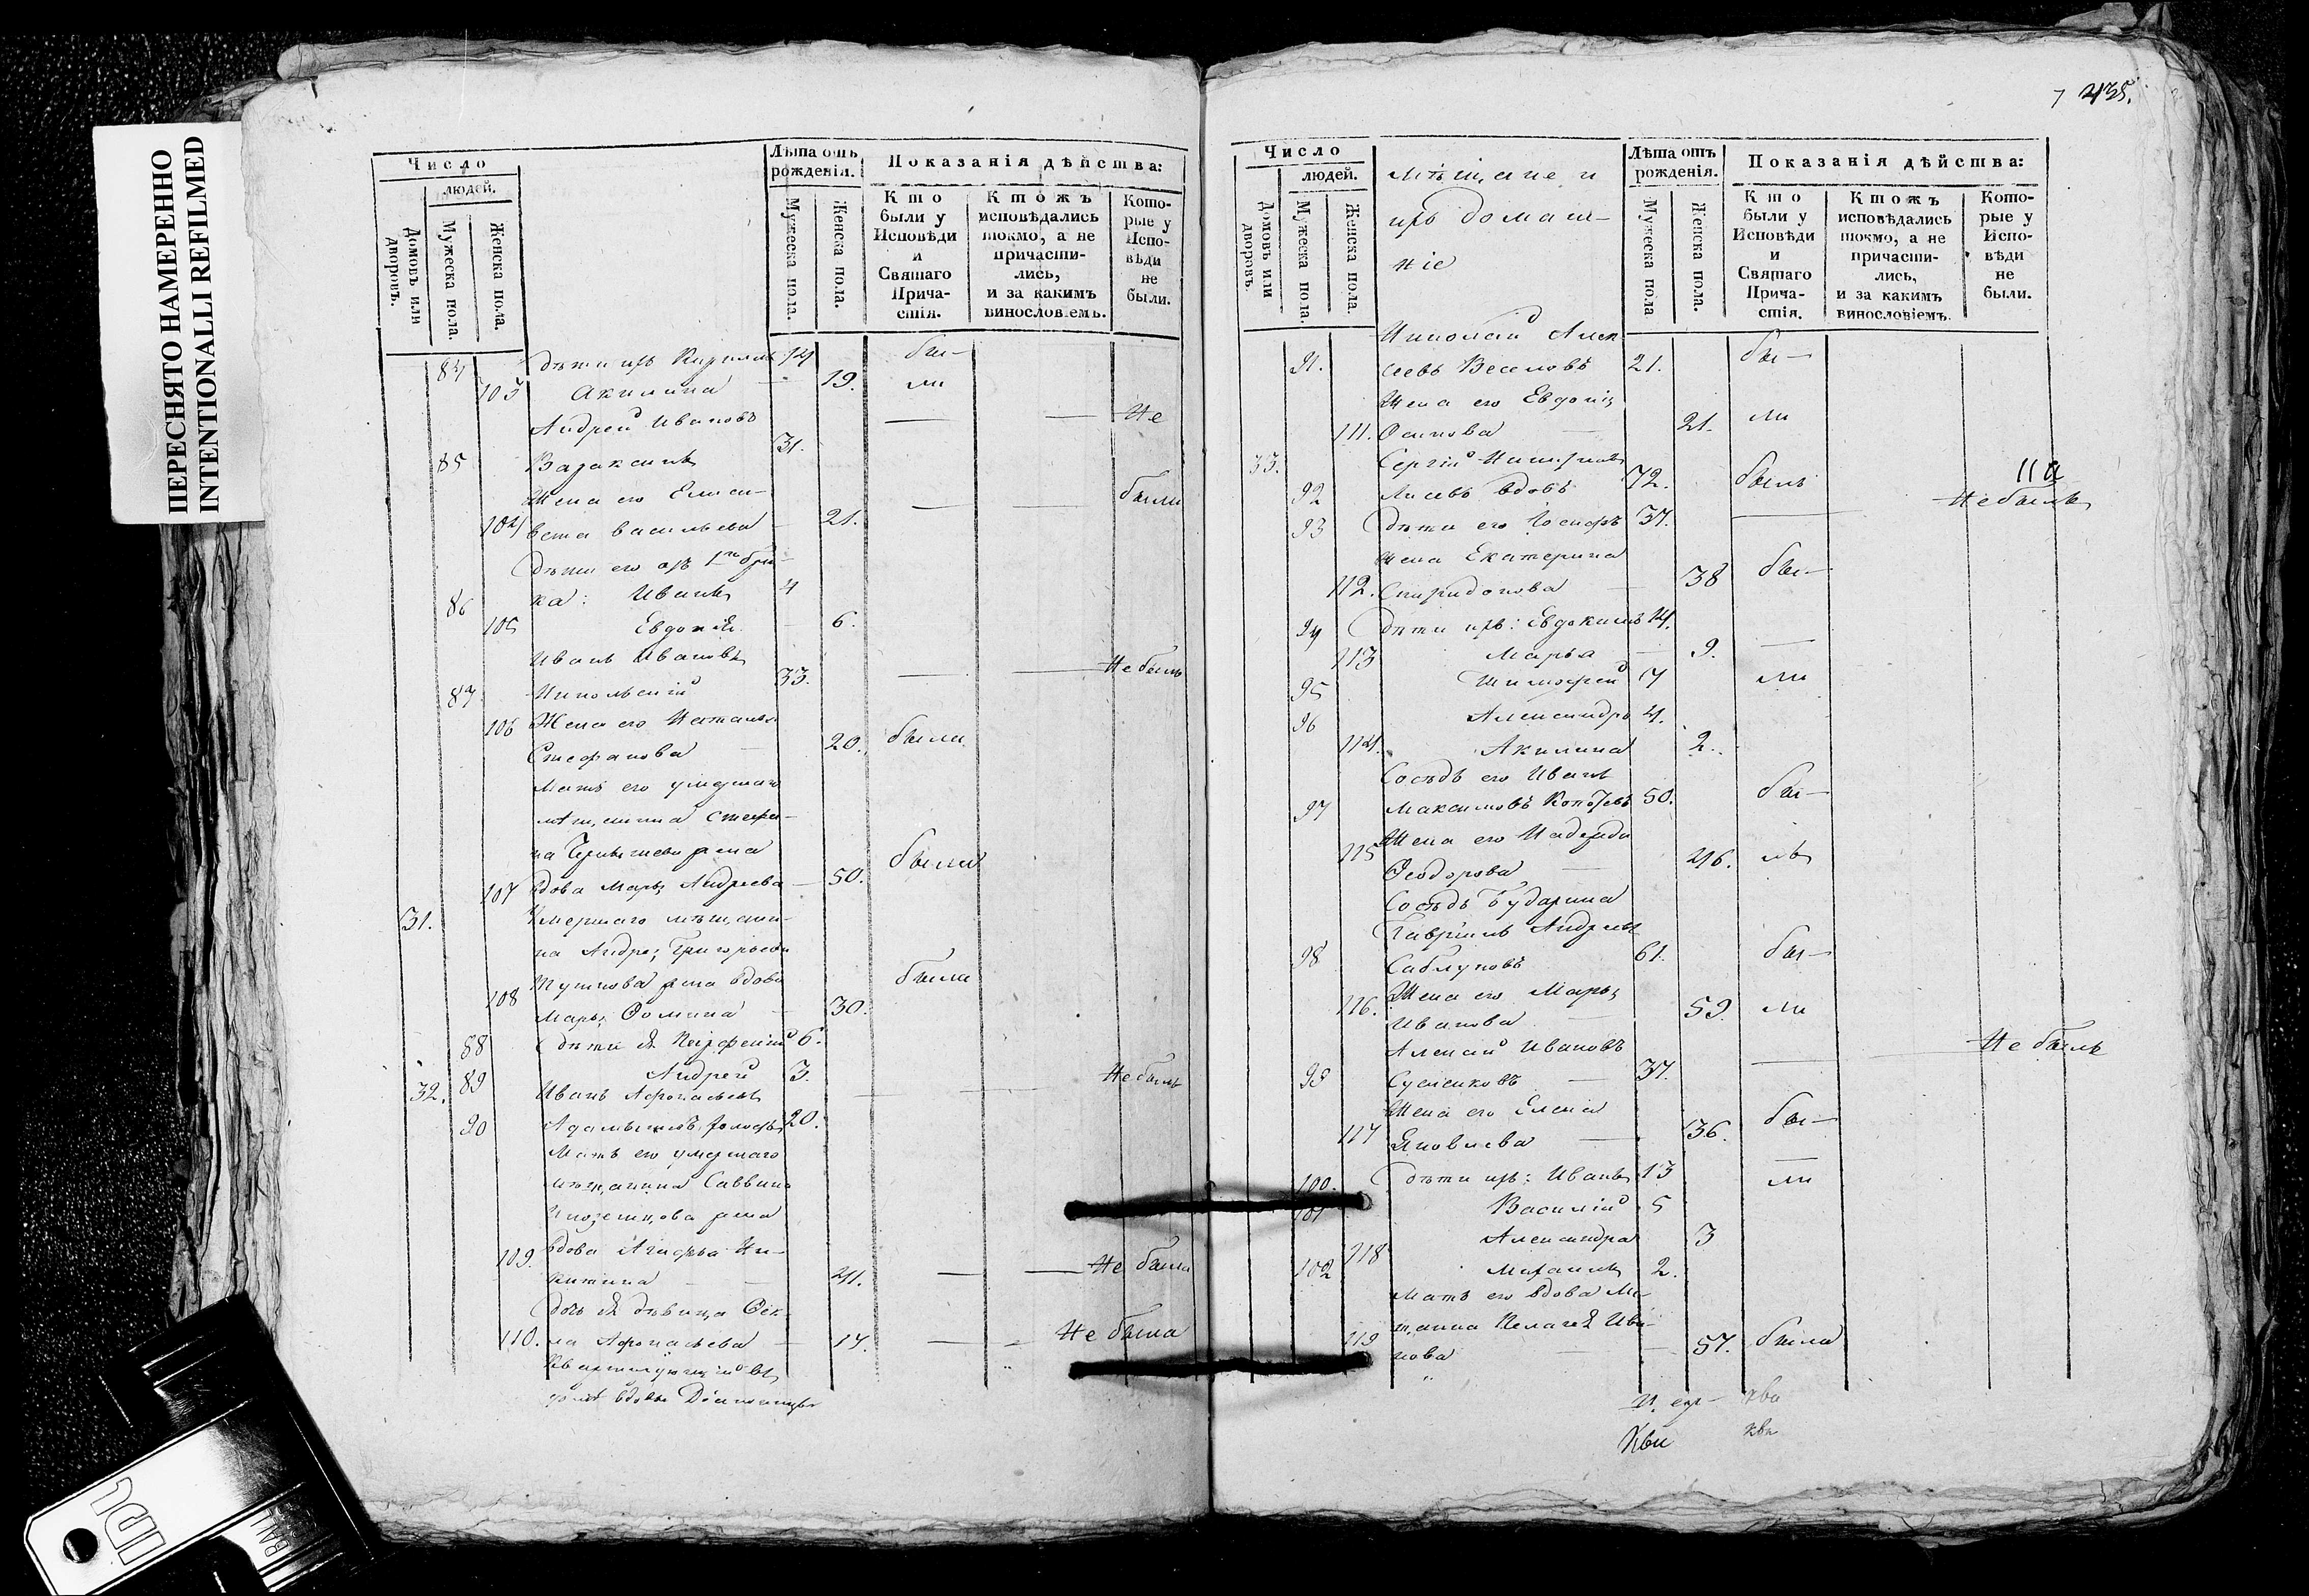 ПЕРЕСНЯТО НАМЕРЕННО
INTENTIONALLI REFILMED
Число
людей.
Домовъ или дворовъ.
Мужеска пола.
Женска пола.
Лѣта отъ рожденія.
Мужеска пола.
Женска пола.
Показанія дѣйства:
Кто были у Исповѣди и Святаго Причастія.
Ктожъ исповѣдались токмо, а не причастились, и за какимъ винословіемъ.
Которые у Исповѣди не были.
84 дѣти ихъ Кириллъ 14 бы-
103 Акилина 19. ли
Андрей Ивановъ Не
85 31.
Жена его Елиса- были
104 вета Васильева 21.
Дѣти его отъ 1го бра-
86 ка: Иванъ 4
105 Евдокія 6.
Иванъ Ивановъ Не былъ
87 Никольскій 33.
106 Жена его Наталья
Стефанова 20. была
Мать его умершаго
мѣщанина Стефа-
на жена
107 вдова Марья Андреева 50. была
31. Умершаго мѣщани-
на Андрея Григорьева
жена вдова была
108 Марья Фомина 30.
88 Дѣти ея Парфеній 6.
89 Андрей 3.
32. Иванъ Афонасьевъ Не былъ
90 холостъ 20.
Мать его умершаго
мѣщанина Саввина
Иноземцова жена
109. вдова Агафья Ни-
китина 41. Не была
Дочь ея дѣвица Фек-
110. ла Афонасьева 17. Не была
Квартирующій въ
домѣ вдовы
7 435.
Число
людей.
Домовъ или дворовъ.
Мужеска пола.
Женска пола.
Мѣщане и
ихъ домаш-
ніе
Лѣта отъ рожденія.
Мужеска пола
Женска пола.
Показанія дѣйства:
Кто были у Исповѣди и Святаго Причастія.
Ктожъ исповѣдались токмо, а не причастились, и за какимъ винословіемъ.
Которые у Исповѣди не были.
Николай Алек-
91. сеевъ Веселовъ 21. бы-
Жена его Евдокія
111. Осипова 21. ли
33. Сергій
92 Лисевъ вдовъ 72. былъ
11а
93 Дѣти его Іосифъ 37. Не былъ
Жена Екатерина
112. Спиридонова 38 бы-
94 Дѣти ихъ: Евдокимъ 14.
113 Марья 9.
95 Тимофей 7 ли
96 Александръ 4.
114. Акилина 2.
Сосѣдъ его Иванъ
97 Максимовъ 50. бы-
115 Жена его Надежда
Ѳеодорова 46. ли
Сосѣдъ Бударина
Гавріилъ Андреевъ
98 Саблуковъ 61. бы-
116. Жена его Марья
Иванова 59. ли
Алексій Ивановъ Не былъ
99 37.
Жена его Елена
117 Яковлева 36. бы-
100. Дѣти ихъ: Иванъ 13 ли
101 Василій 5
118 Александра 3
102 Михаилъ 2.
Мать его вдова мѣ-
119 щанка Пелагея Ива-
нова 57. была